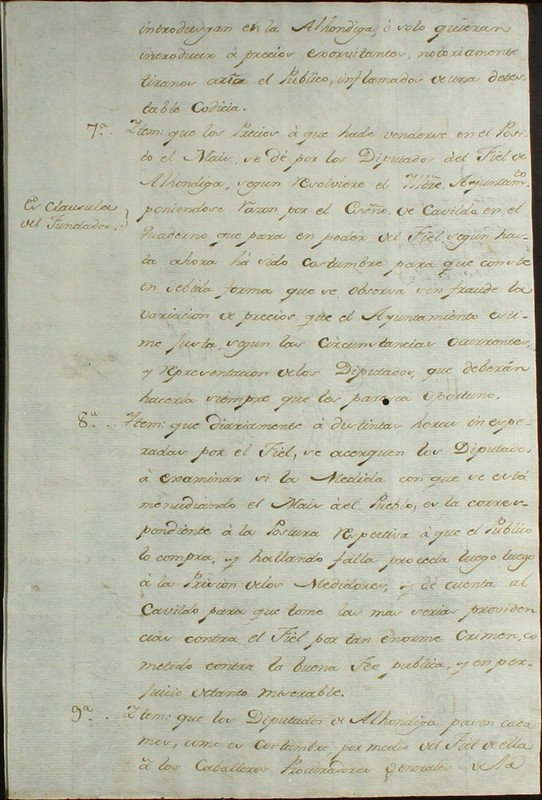 introdusgan en la Alhondiga, ò solo quieran
introducir à precios exorvitantes, notoriamente
tiranos el Publico, inflamados de una detes-
table Codicia.
7ª. Item: que los Precios à que hade venderse en el Posi-
to el Mais, se dè por los Diputados àel Fiel de
Alhondiga, segun resolviere el Iltre. Ayuntamto.
Es Clausula
del Fundador.
poniendose razon por el Essno. de Cavildo en el
Quaderno que para en poder del Fiel, segun has-
ta ahora hà sido costumbre para que conste
en debida forma que se observa sin fraude la
variacion de precios, que el Ayuntamiento esti-
me justa, segun las Circunstancias ocurrentes,
y representacion delos Diputados, que deberàn
hacerla siempre que les paresca oportuno.
8ª. Item: que diariamente à distintas horas inespe-
radas por el Fiel, se acerquen los Diputados
à examinar si la Medida con que se està
menudiando el Mais àel Pueblo, es la corres-
pondiente à la Postura respectiva à que el Publico
lo compra, y hallando falla proceda luego luego
à la Prision delos Medidores, y dè cuenta al
Cavildo para que tome las mas serias providen
cias contra el Fiel por tan enorme Crimen, co
metido contra la buena Fee publica, y en per-
juicio detanto miserable.
9ª. Item: que los Diputados de Alhondiga pasen cada
mes, como es costumbre, por medio del Fiel de ella
à los Caballeros Procuradores Generales de la